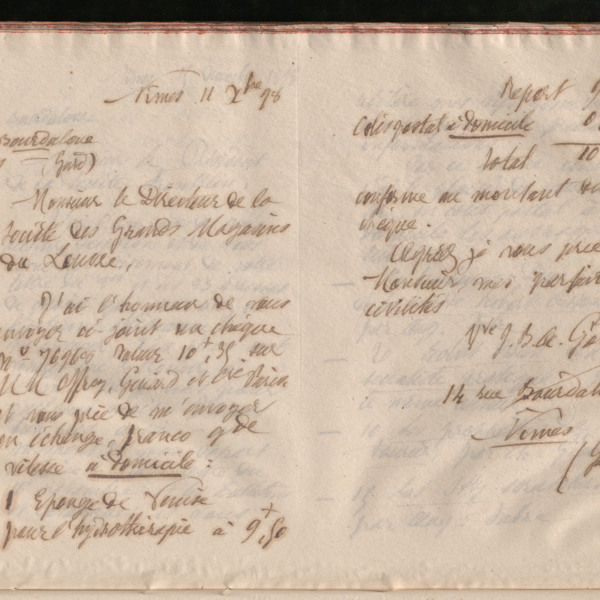 Nimes 11 Xbre 98
Bourdaloue
(Gard)
Monsieur le Directeur de la
Société des Grands Magasins
du Louvre,
J'ai l'honneur de vous
envoyer ci-joint un chèque
N° valeur 10f,35 sur
et vous prie de m'envoyer
en échange, franco gde
vitesse à domicile :
1 Eponge de Venise
pour l'hydrothérapie à 9f,50
Report 9
Colis postal à domicile 0
Total 10
conforme au montant du
chèque.
Agréez je vous prie
Monsieur mes parfaites
civilités
Vve J. B. de
14 rue Bourdal
Nimes
(G